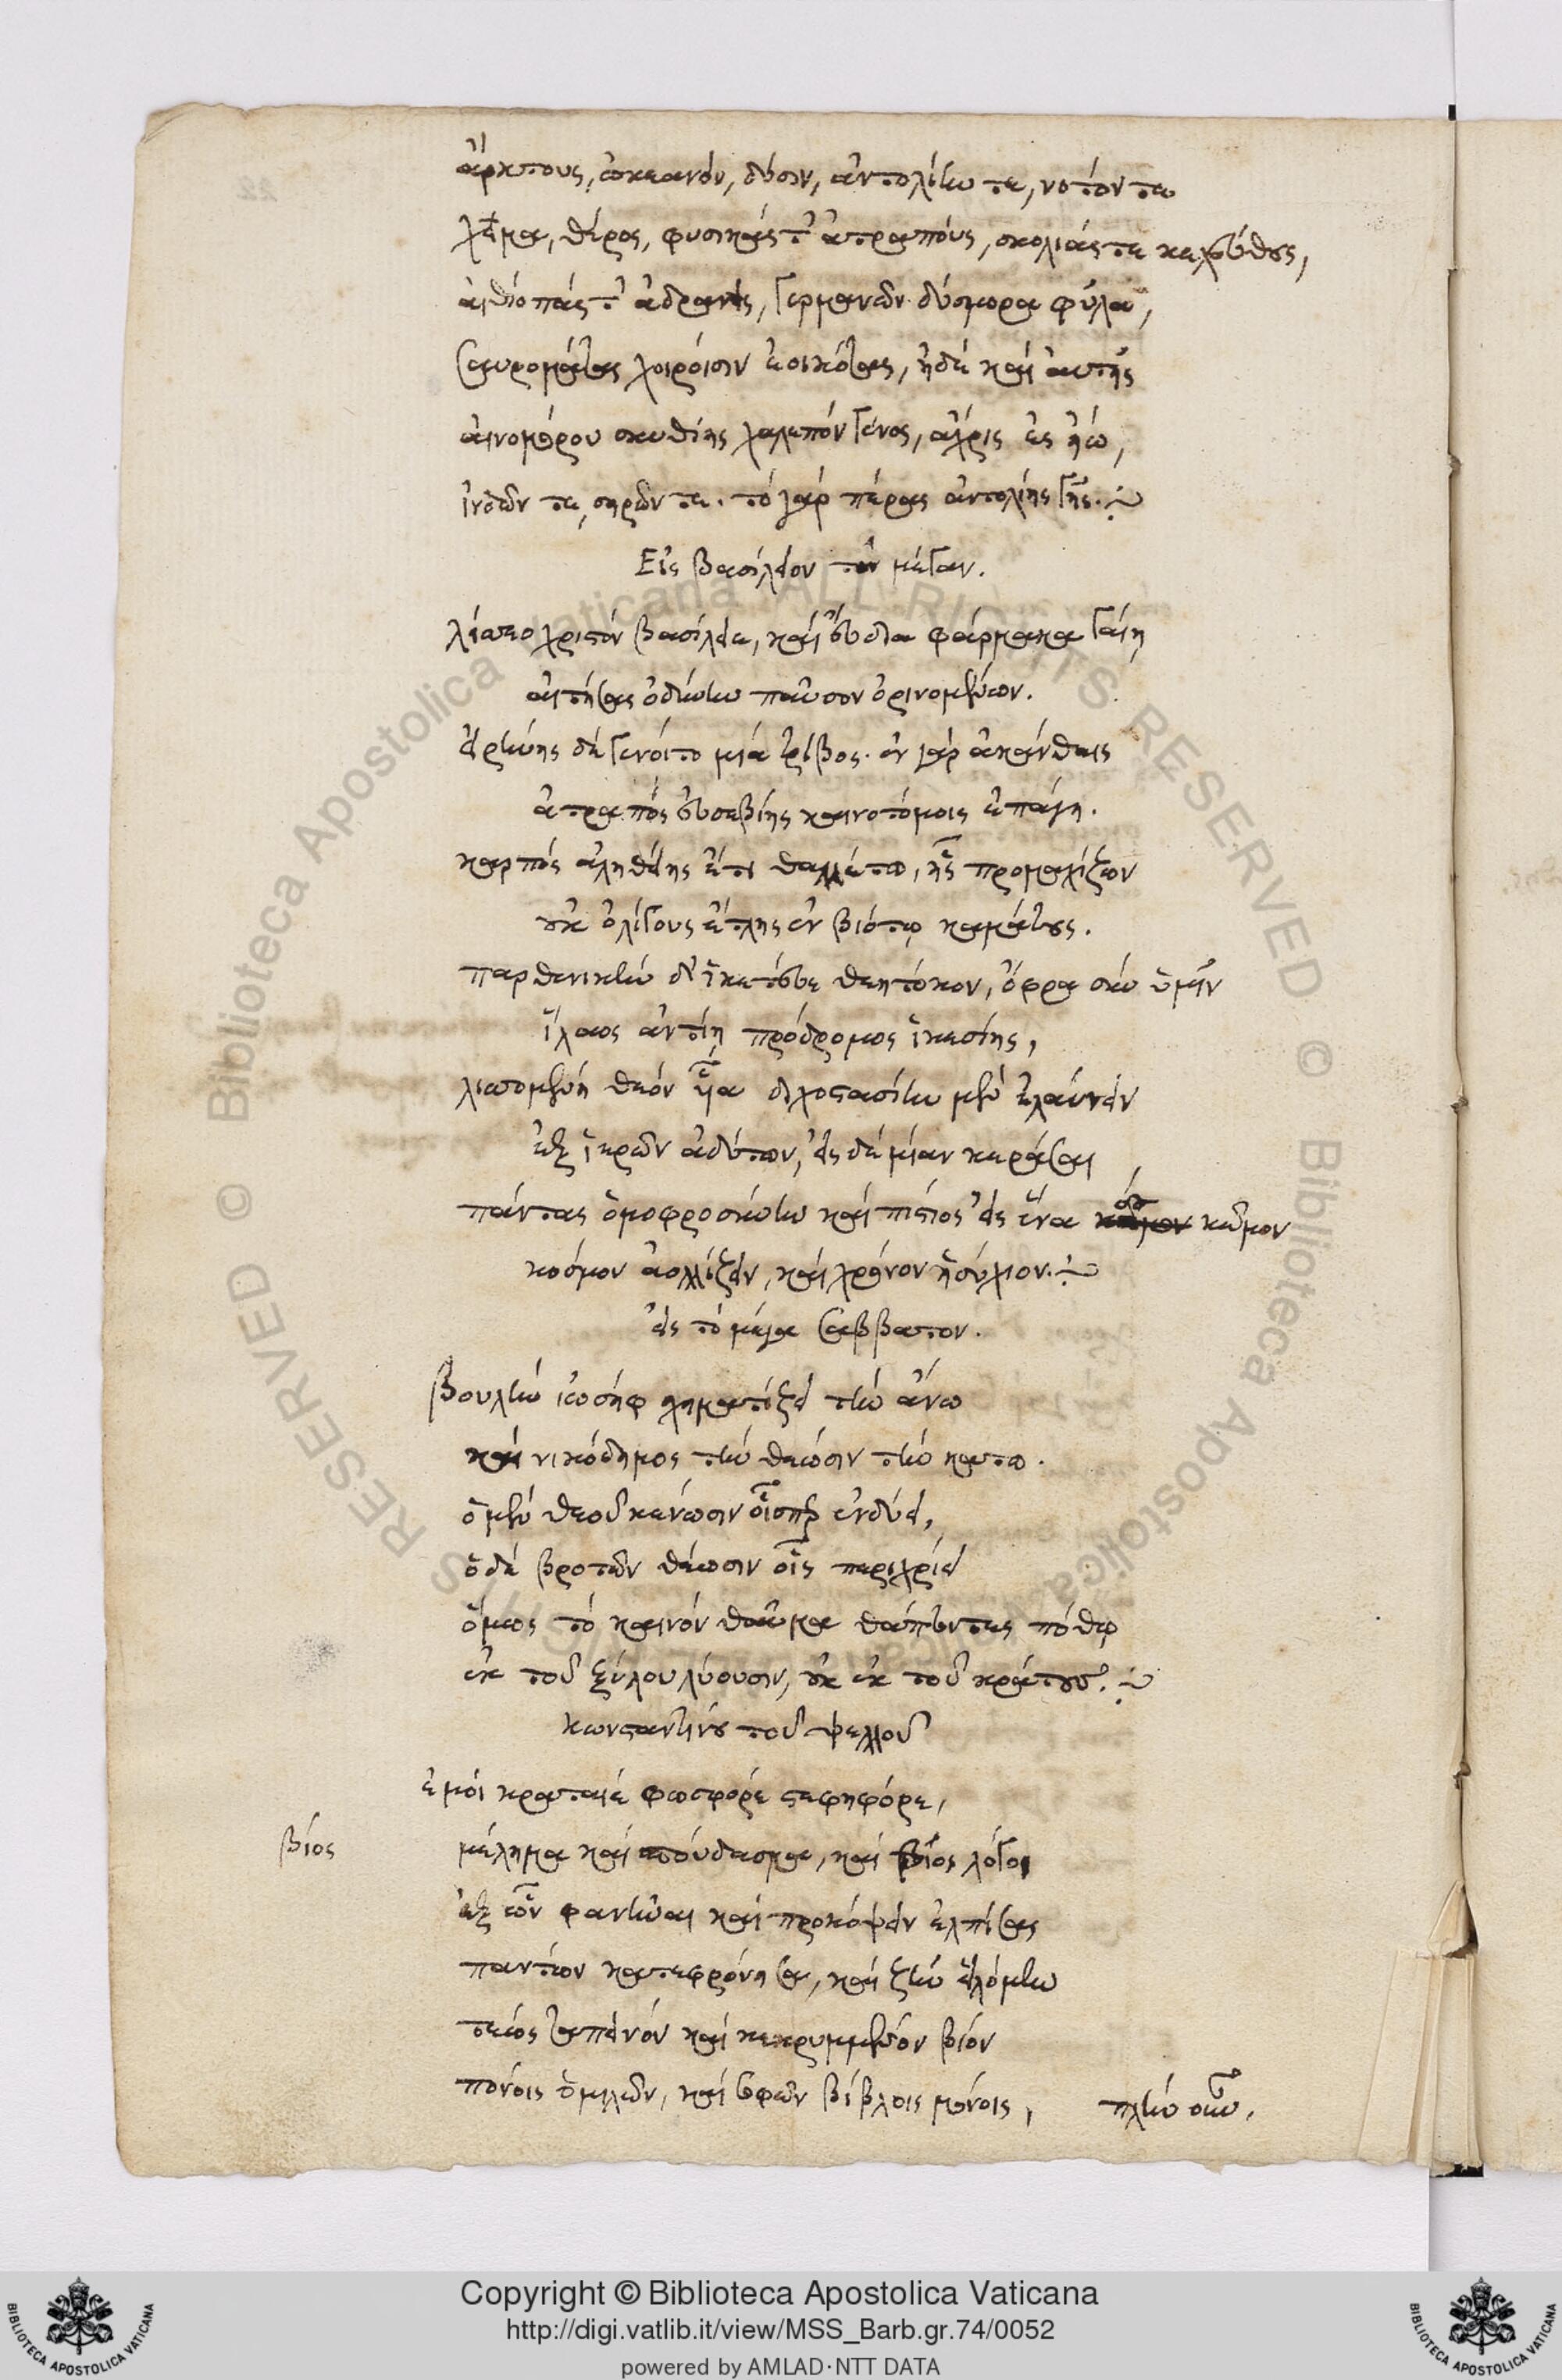 ἄρκτους, ὠκεανόν, δύσιν, ἀντολίην τε, νοτόν τε
χεῖμα, θέρος, φυσικάς τ' ἀτραπούς, σκολιάς τε κελεύθους,
αἰθίοπάς τ' ἀδρανεῖς, γερμανῶν δύσμορα φύλα,
σαυρομάτας χοιροῖσιν ἐοικότας, ἠδὲ καὶ αὐτῆς
αἰνομόρου σκυθίης χαλεπὸν γένος, ἄχρις ἐς ἠώ,
ἰνδῶν τε, σηρῶν τε. τὸ γὰρ πέρας ἀντολίης γῆς.
Εἰς βασίλειον τὸν μέγαν.
λίσσεο χριστὸν βασίλειε, καὶ εὔδια φάρμακα γαίῃ
αἰτήσας ὀδύνην παῦσον ὀρινομένων.
εἰρήνης δὲ γένοιτο μιὰ τρίβος. ἐν γὰρ ἀκάνθαις
ἀτραπὸς εὐσεβίης καινοτόμοις ἐπάγη.
καρπὸς ἀληθείης ἔτι θαλλέτω, ἧς προμαχίζων
οὐκ ὀλίγους ἔτλης ἐν βιότῳ καμάτους.
παρθενικὴν δ' ἱκέτευε θεητόκον, ὄφρα σὺν ὑμῖν
ἵλαος ἀντίῃ πρόδρομος ἱκεσίης,
λισσομένη θεὸν υἷα διχοστασίην μὲν ἐλαύνειν
ἐξ ἱερῶν ἀδύτων, εἰς δὲ μίαν κεράσαι
πάντας ὁμοφροσύνην καὶ πίστιος εἰς ἕνα κῶμον
κόσμον ἀολλίζειν, καὶ χρόνον ἡσύχιον.
εἰς τὸ μέγα σάββατον.
βουλὴν ἰωσὴφ σχηματίζει τὴν ἄνω
καὶ νικόδημος τὴν θέωσιν τὴν κάτω.
ὁ μὲν θεοῦ κένωσιν οἷσπερ ἐνδύει,
ὁ δὲ βροτῶν θέωσιν οἷς περιχρίει
ὅμως τὸ καινὸν θαῦμα θάπτοντες πόθῳ
ἐκ τοῦ ξύλου λύουσιν, οὐκ ἐκ τοῦ κράτους.
κωνσταντίνου τοῦ ψελλοῦ
ἐμοὶ κραταιὲ φωσφόρε στεφηφόρε,
βίος
μέλημα καὶ σπούδασμα, καὶ βίος λόγοι
ἐξ ὧν φανῆναι καὶ προκόψειν ἐλπίσας
πάντων κατεφρόνησα, καὶ ζῆν εἱλόμην
τέως ταπεινὸν καὶ κεκρυμμένον βίον
πόνοις ὁμιλῶν, καὶ σοφῶν βίβλοις μόνοις,
πλὴν οὖν.
Copyright © Biblioteca Apostolica Vaticana
http://digi.vatlib.it/view/MSS_Barb.gr.74/0052
powered by AMLAD·NTT DATA